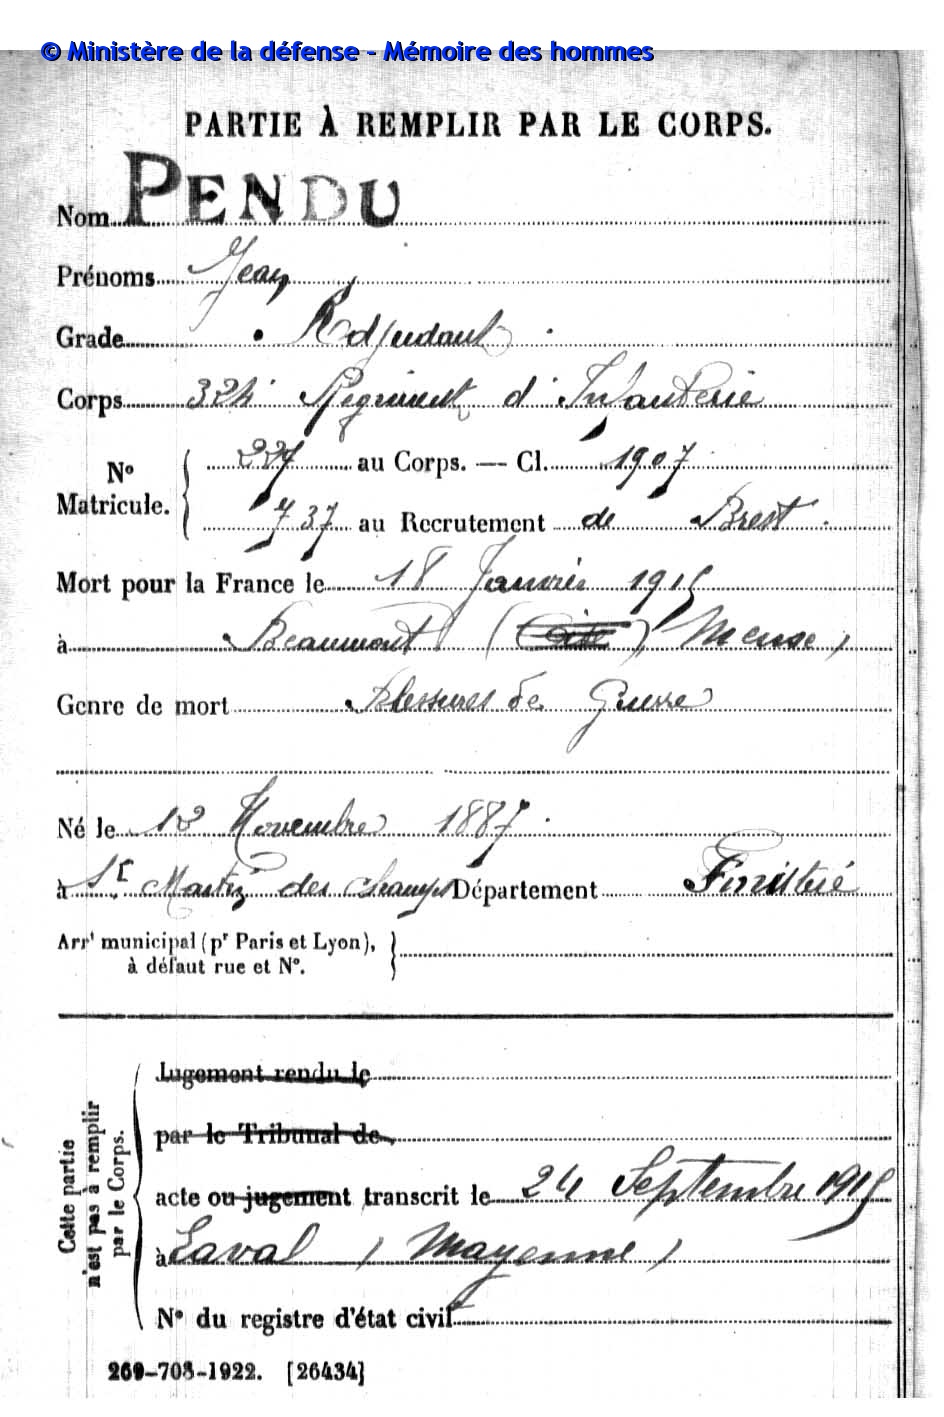 © Ministère de la défense - Mémoire des hommes
PARTIE À REMPLIR PAR LE CORPS.
Nom PENDU
Prénoms Jean
Grade Adjudant
Corps 324e Régiment d'Infanterie
No Matricule. 227 au Corps. — Cl. 1907
737 au Recrutement de Brest.
Mort pour la France le 18 Janvier 1915
à Beaumont ( ) Meuse )
Genre de mort Blessures de Guerre
Né le 12 Novembre 1887.
à St Martin des Champs Département Finistère
Arrt municipal (pr Paris et Lyon),
à défaut rue et No.
Cette partie
n'est pas à remplir
par le Corps.
Jugement rendu le
par le Tribunal de
acte ou jugement transcrit le 24 Septembre 1915
à Laval ( Mayenne )
No du registre d'état civil
269-708-1922. [26434]